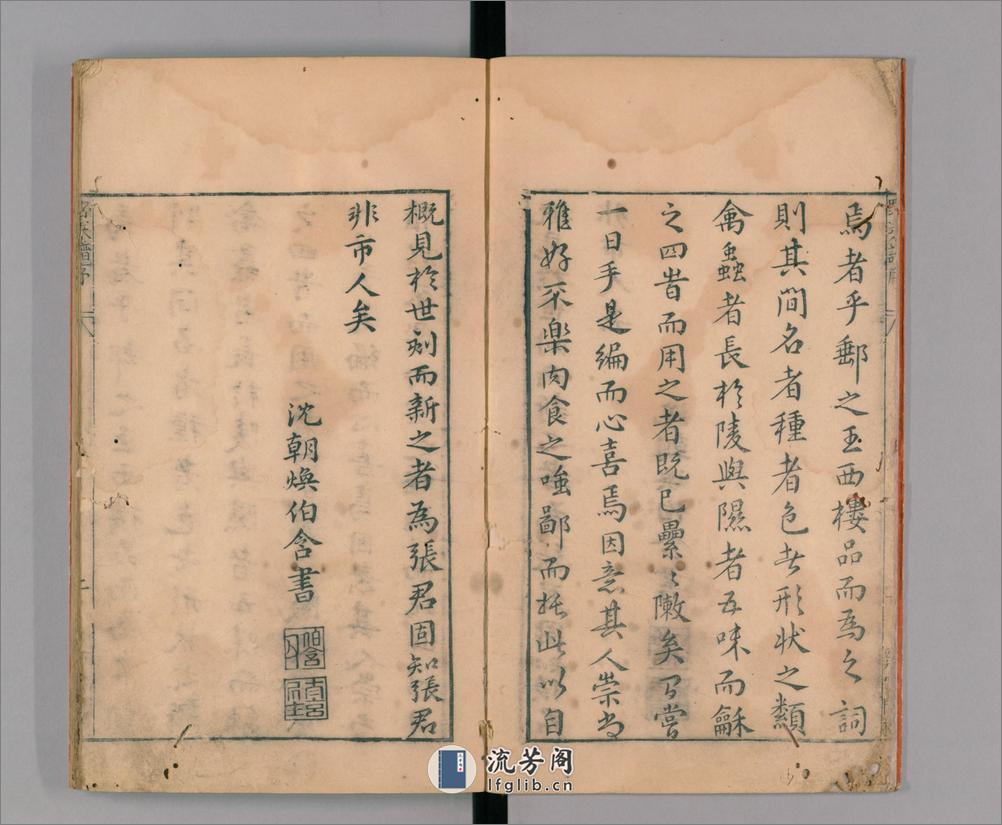 焉者乎鄭之玉西樓品而為之詞
則其間名者種者色者形狀之類
禽蟲者長於陵與隰者五味而龢
之四者而用之者既已纍〻敶矣乃嘗
一日手是編而心喜焉因意其人崇尚
雅好不樂肉食之嗤鄙而托此以自
概見於世刻而新之者為張君固知張君
非市人矣
沈朝煥伯含書
流芳阁
lfglib.cn